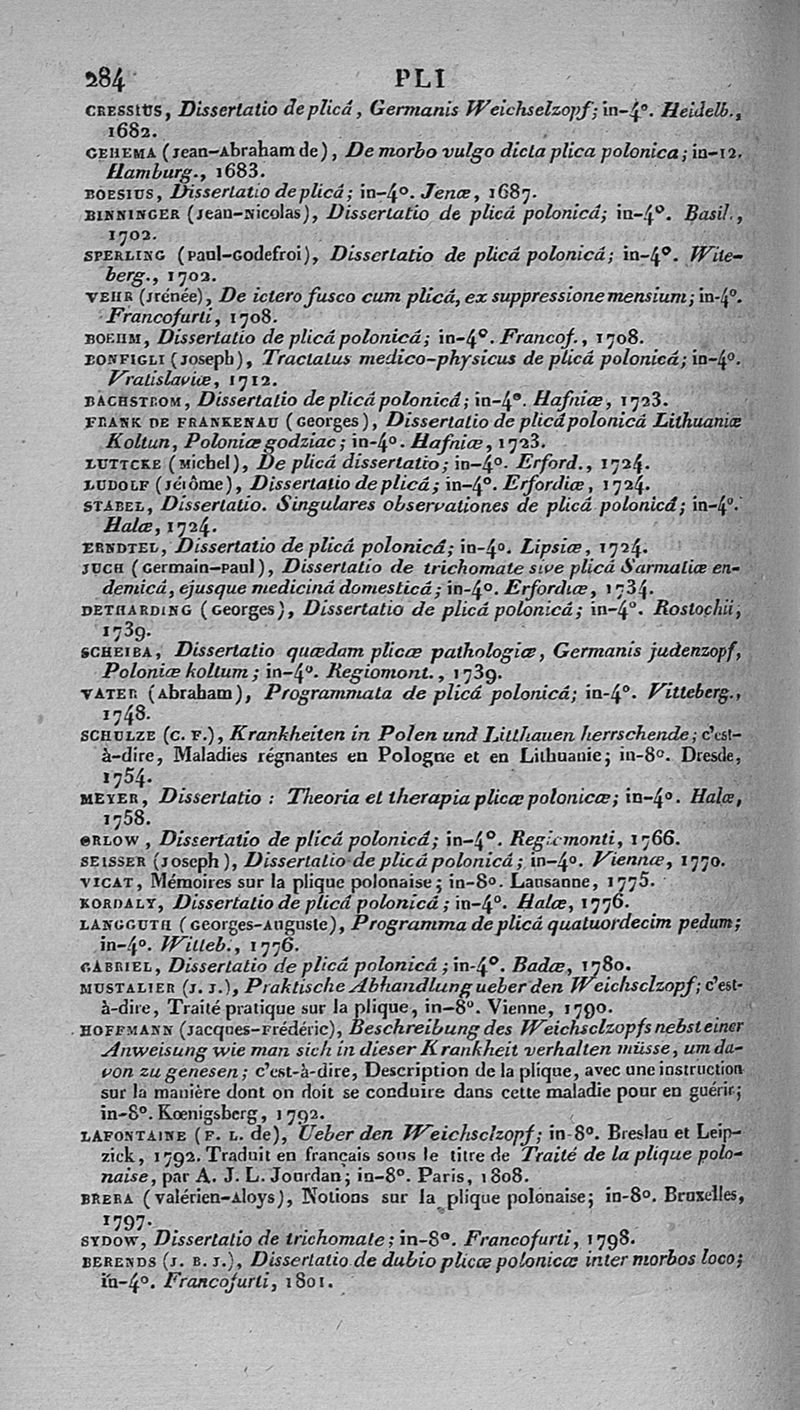 284 PLI
CRESSIUS, Dissertatio de plicâ, Germanis Weichselzopf; in-4°. Heidelb.,
1682.
GEHEMA (Jean-Abraham de), De morbo vulgo dicta plica polonica; in-12.
Hamburg., 1683.
BOESIUS, Dissertatio de plicâ; in-4°. Jenæ, 1687.
BINNINGER (Jean-Nicolas), Dissertatio de plicâ polonicâ; in-4°. Basil.,
1702.
SPERLING (Paul-Godefroi), Dissertatio de plicâ polonicâ; in-4°. Wite-
berg., 1702.
VEHR (Irénée), De ictero fusco cum plicâ, ex suppressione mensium; in-4°.
Francofurti, 1708.
BOEHM, Dissertatio de plicâ polonicâ; in-4°. Francof., 1708.
BONFIGLI (Joseph), Tractatus medico-physicus de plicâ polonicâ; in-4°.
Vratislaviæ, 1712.
BACHSTROM, Dissertatio de plicâ polonicâ; in-4°. Hafniæ, 1723.
FRANK DE FRANKENAU (Georges), Dissertatio de plicâ polonicâ Lithuaniæ
Koltun, Poloniæ godziac; in-4°. Hafniæ, 1723.
LUTTCKE (Michel), De plicâ dissertatio; in-4°. Erford., 1724.
LUDOLF (Jérôme), Dissertatio de plicâ; in-4°. Erfordiæ, 1724.
STABEL, Dissertatio. Singulares observationes de plicâ polonicâ; in-4°.
Halæ, 1724.
ERNDTEL, Dissertatio de plicâ polonicâ; in-4°. Lipsiæ, 1724.
JUCH (Germain-Paul), Dissertatio de trichomate sive plicâ Sarmatiæ en-
demicâ, ejusque medicinâ domesticâ; in-4°. Erfordiæ, 1734.
DETHARDING (Georges), Dissertatio de plicâ polonicâ; in-4°. Rostochii,
1739.
SCHEIBA, Dissertatio quædam plicæ pathologiæ, Germanis judenzopf,
Poloniæ koltum; in-4°. Regiomont., 1739.
VATER (Abraham), Programmata de plicâ polonicâ; in-4°. Vitteberg.,
1748.
SCHULZE (C. F.), Krankheiten in Polen und Litthauen herrschende; c'est-
à-dire, Maladies régnantes en Pologne et en Lithuanie; in-8°. Dresde,
1754.
MEYER, Dissertatio : Theoria et therapia plicæ polonicæ; in-4°. Halæ,
1758.
ORLOW, Dissertatio de plicâ polonicâ; in-4°. Regiomonti, 1766.
SEISSER (Joseph), Dissertatio de plicâ polonicâ; in-4°. Viennæ, 1770.
VICAT, Mémoires sur la plique polonaise; in-8°. Lausanne, 1775.
KORDALY, Dissertatio de plicâ polonicâ; in-4°. Halæ, 1776.
LANGGUTH (Georges-Auguste), Programma de plicâ quatuordecim pedum;
in-4°. Witteb., 1776.
GABRIEL, Dissertatio de plicâ polonicâ; in-4°. Badæ, 1780.
MUSTALIER (J. J.), Praktische Abhandlung ueber den Weichselzopf; c'est-
à-dire, Traité pratique sur la plique, in-8°. Vienne, 1790.
HOFFMANN (Jacques-Frédéric), Beschreibung des Weichselzopfs nebst einer
Anweisung wie man sich in dieser Krankheit verhalten müsse, um da-
von zu genesen; c'est-à-dire, Description de la plique, avec une instruction
sur la manière dont on doit se conduire dans cette maladie pour en guérir;
in-8°. Kœnigsberg, 1792.
LAFONTAINE (F. L. de), Ueber den Weichselzopf; in-8°. Breslau et Leip-
zick, 1792. Traduit en français sous le titre de Traité de la plique polo-
naise, par A. J. L. Jourdan; in-8°. Paris, 1808.
BRERA (Valérien-Aloys), Notions sur la plique polonaise; in-8°. Bruxelles,
1797.
SYDOW, Dissertatio de trichomate; in-8°. Francofurti, 1798.
BERENDS (J. B. J.), Dissertatio de dubio plicæ polonicæ inter morbos loco;
in-4°. Francofurti, 1801.